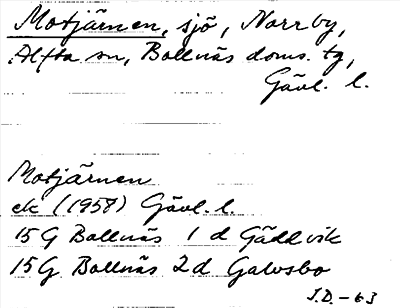 Motjärnen, sjö, Norrby,
Alfta sn, Bollnäs doms. tg,
Gävl. l.
Motjärnen
ek (1958) Gävl. l.
15G Bollnäs 1 d Gäddvik
15G Bollnäs 2d Galvsbo
J.D.-63